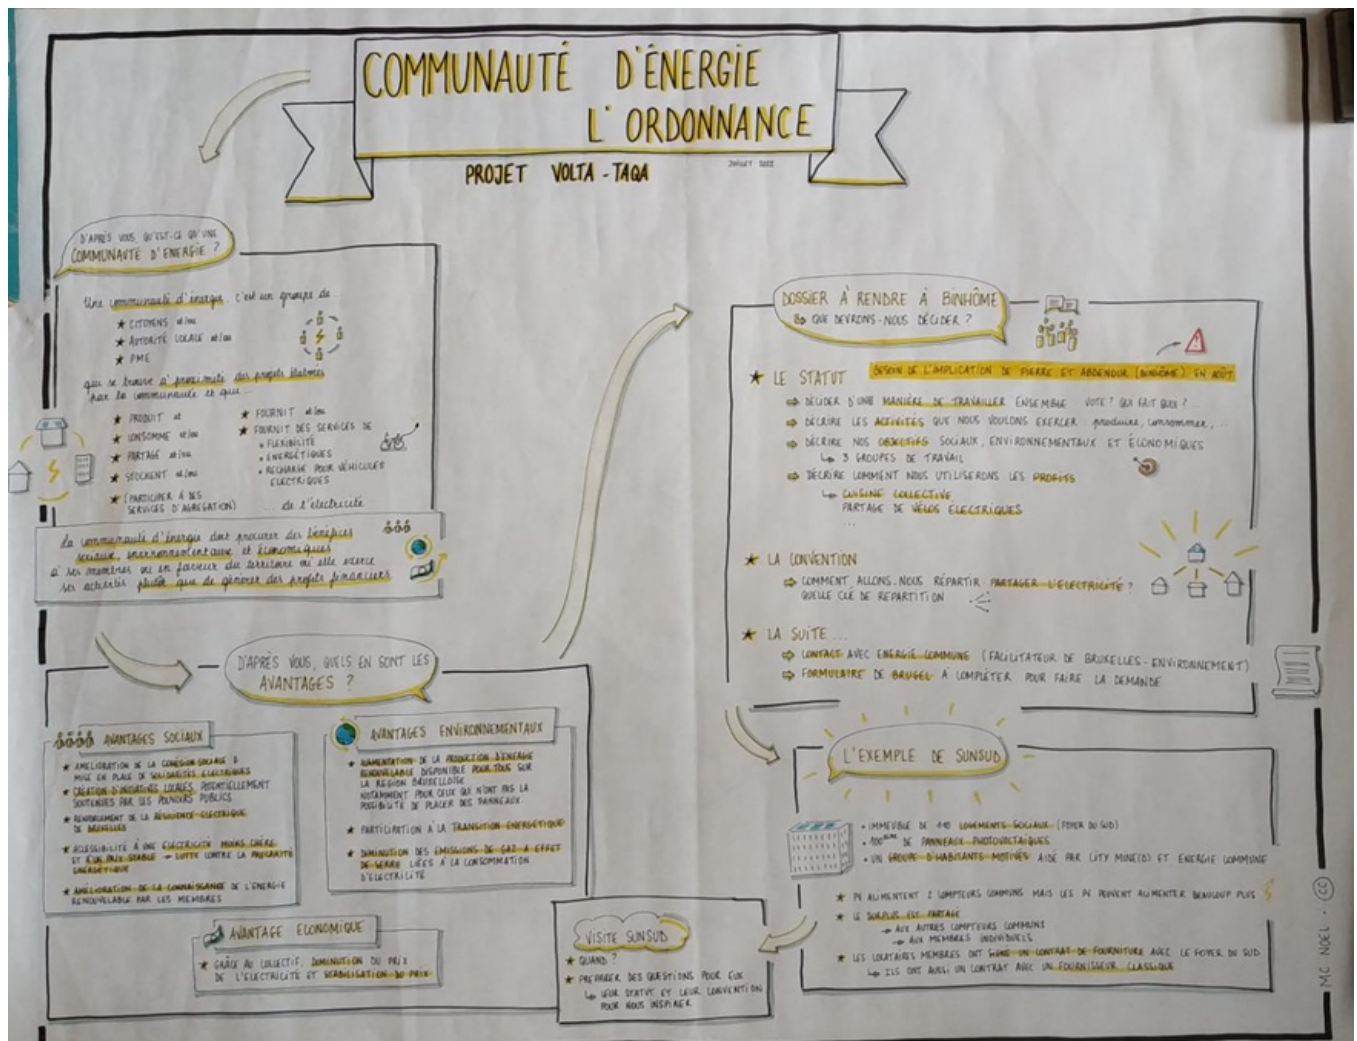 COMMUNAUTÉ D'ÉNERGIE
L'ORDONNANCE
PROJET VOLTA-TAQA
JUILLET 2022
D'APRÈS VOUS, QU'EST-CE QU'UNE
COMMUNAUTÉ D'ENERGIE ?
Une communauté d'énergie, c'est un groupe de...
★ CITOYENS et/ou
★ AUTORITÉ LOCALE et/ou
★ PME
qui se trouve à proximité des projets élaborés
par la communauté et qui...
★ PRODUIT et
★ CONSOMME et/ou
★ PARTAGE et/ou
★ STOCKENT et/ou
★ (PARTICIPER À DES
SERVICES D'AGREGATION)
★ FOURNIT et/ou
★ FOURNIT DES SERVICES DE
• FLEXIBILITÉ
• ENERGÉTIQUES
• RECHARGE POUR VÉHICULES
ELECTRIQUES
... de l'électricité
La communauté d'énergie doit procurer des bénéfices
sociaux, environnementaux et économiques
à ses membres ou en faveur du territoire où elle exerce
ses activités plutôt que de générer des profits financiers
D'APRÈS VOUS, QUELS EN SONT LES
AVANTAGES ?
AVANTAGES SOCIAUX
★ AMÉLIORATION DE LA COHÉSION SOCIALE &
MISE EN PLACE DE SOLIDARITÉS ELECTRIQUES
★ CRÉATION D'INITIATIVES LOCALES, POTENTIELLEMENT
SOUTENUES PAR LES POUVOIRS PUBLICS
★ RENFORCEMENT DE LA RÉSILIENCE ELECTRIQUE
DE BRUXELLES
★ ACCESSIBILITÉ À UNE ELECTRICITÉ MOINS CHÈRE
ET À UN PRIX STABLE → LUTTE CONTRE LA PRÉCARITÉ
ENERGÉTIQUE
★ AMÉLIORATION DE LA CONNAISSANCE DE L'ÉNERGIE
RENOUVELABLE PAR LES MEMBRES
AVANTAGES ENVIRONNEMENTAUX
★ AUGMENTATION DE LA PRODUCTION D'ÉNERGIE
RENOUVELABLE DISPONIBLE POUR TOUS SUR
LA REGION BRUXELLOISE
NOTAMMENT POUR CEUX QUI N'ONT PAS LA
POSSIBILITÉ DE PLACER DES PANNEAUX
★ PARTICIPATION À LA TRANSITION ENERGÉTIQUE
★ DIMINUTION DES ÉMISSIONS DE GAZ À EFFET
DE SERRE LIÉES À LA CONSOMMATION
D'ELECTRICITÉ
AVANTAGE ECONOMIQUE
★ GRÂCE AU COLLECTIF, DIMINUTION DU PRIX
DE L'ELECTRICITÉ ET STABILISATION DU PRIX
DOSSIER À RENDRE À BINHÔME
↳ QUE DEVRONS-NOUS DÉCIDER ?
★ LE STATUT
BESOIN DE L'IMPLICATION DE PIERRE ET ABDENOUR (BINHÔME) EN AOÛT
⇨ DÉCIDER D'UNE MANIÈRE DE TRAVAILLER ENSEMBLE VOTE ? QUI FAIT QUOI ? ...
⇨ DÉCRIRE LES ACTIVITÉS QUE NOUS VOULONS EXERCER : produire, consommer, ...
⇨ DÉCRIRE NOS OBJECTIFS SOCIAUX, ENVIRONNEMENTAUX ET ÉCONOMIQUES
↳ 3 GROUPES DE TRAVAIL
⇨ DÉCRIRE COMMENT NOUS UTILISERONS LES PROFITS
↳ CUISINE COLLECTIVE
PARTAGE DE VÉLOS ELECTRIQUES
...
★ LA CONVENTION
⇨ COMMENT ALLONS-NOUS RÉPARTIR PARTAGER L'ELECTRICITÉ ?
QUELLE CLÉ DE REPARTITION
★ LA SUITE ...
⇨ CONTACT AVEC ENERGIE COMMUNE (FACILITATEUR DE BRUXELLES-ENVIRONNEMENT)
⇨ FORMULAIRE DE BRUGEL À COMPLÉTER POUR FAIRE LA DEMANDE
L'EXEMPLE DE SUNSUD
• IMMEUBLE DE 110 LOGEMENTS SOCIAUX (FOYER DU SUD)
• 100aine DE PANNEAUX PHOTOVOLTAÏQUES
• UN GROUPE D'HABITANTS MOTIVÉS AIDÉ PAR CITY MINE(D) ET ENERGIE COMMUNE
★ PV ALIMENTENT 2 COMPTEURS COMMUNS MAIS LES PV PEUVENT ALIMENTER BEAUCOUP PLUS
★ LE SURPLUS EST PARTAGÉ
→ AUX AUTRES COMPTEURS COMMUNS
→ AUX MEMBRES INDIVIDUELS
★ LES LOCATAIRES MEMBRES ONT SIGNÉ UN CONTRAT DE FOURNITURE AVEC LE FOYER DU SUD
↳ ILS ONT AUSSI UN CONTRAT AVEC UN FOURNISSEUR CLASSIQUE
VISITE SUNSUD
★ QUAND ?
★ PREPARER DES QUESTIONS POUR EUX
↳ LEUR STATUT ET LEUR CONVENTION
POUR NOUS INSPIRER
MC NOEL • CC